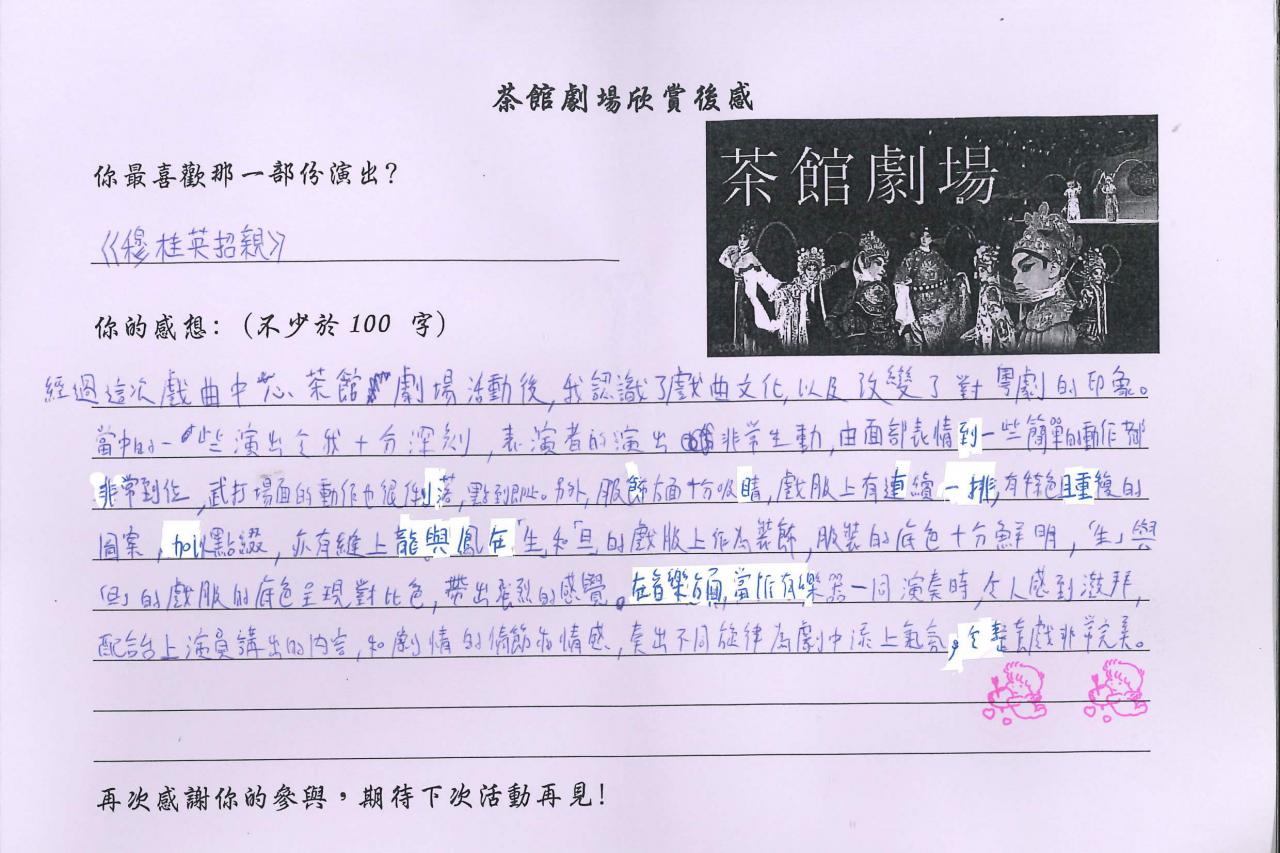 茶館劇場欣賞後感
茶館劇場
你最喜歡那一部份演出?
《穆桂英招親》
你的感想:(不少於100 字)
經過這次戲曲中心茶館劇場活動後,我認識了戲曲文化,以及改變了對粵劇的印象。
當中的一些演出令我十分深刻,表演者的演出非常生動,由面部表情到一些簡單的動作都
非常到位,武打場面的動作也很俐落,點到即止。另外,服飾方面十分吸睛,戲服上有連續一排,有特色且重複的
圖案,加以點綴,亦有縫上龍與鳳在「生」和「旦」的戲服上作為裝飾,服裝的底色十分鮮明,「生」與
「旦」的戲服的底色呈現對比色,帶出強烈的感覺。在音樂方面,當所有樂器一同演奏時,令人感到澎湃,
配合台上演員講出的內容,和劇情的情節和情感,奏出不同旋律為劇中添上氣氛,令整套戲非常完美。
再次感謝你的參與,期待下次活動再見!